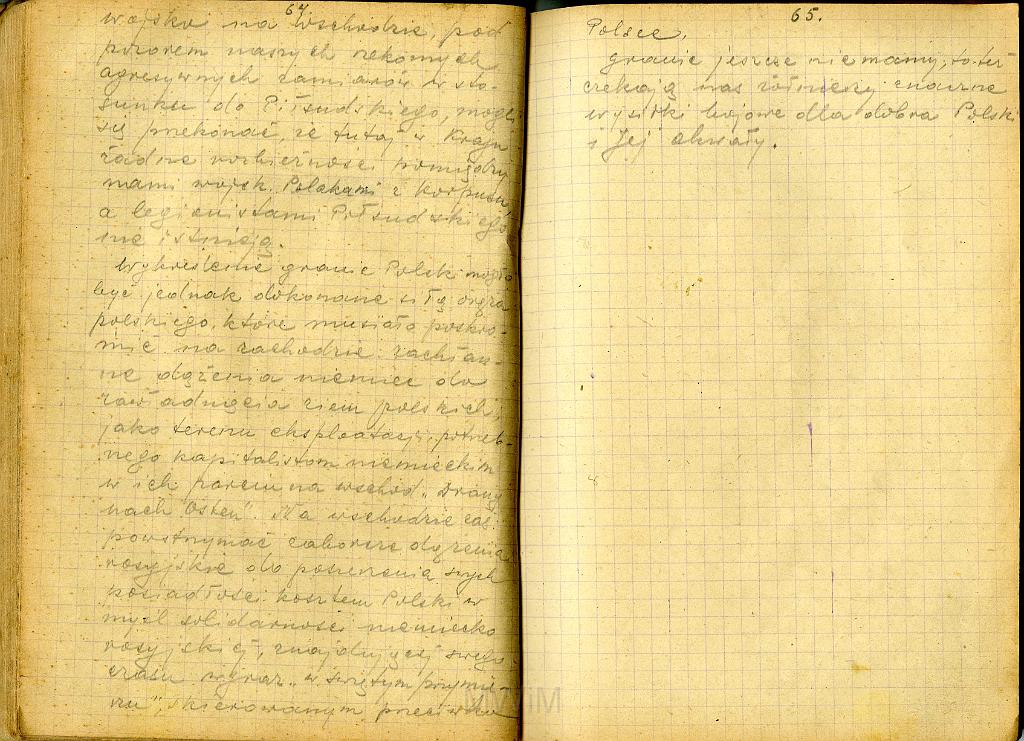 64.
wojska na Wschodzie, pod
pozorem naszych rzekomych
agresywnych zamiarów w sto-
sunku do Piłsudskiego, mogli
się przekonać, że tutaj w Kraju
żadne rozbieżności pomiędzy
nami wojsk. Polakami z Korpusu
a legionistami Piłsudskiego
nie istnieją.
Wykreślenie granic Polski mogło
być jednak dokonane siłą oręża
polskiego, które musiało poskro-
mić na zachodzie zachłan-
ne dążenia niemiec do
zawładnięcia ziem polskich,
jako terenu eksploatacji, potrzeb-
nego kapitalistom niemieckim
w ich parciu na wschód „Drang
nach Osten". Na wschodzie zaś
powstrzymać zaborcze dążenia
rosyjskie do poszerzenia swych
posiadłości kosztem Polski w
myśl solidarności niemiecko
rosyjskiej, znajdującej swego
czasu wyraz „w świętym przymie-
rzu", skierowanym przeciwko
65.
Polsce.
granic jeszcze nie mamy, to też
czekają nas żołnierzy znaczne
wysiłki bojowe dla dobra Polski
i Jej chwały.
MWTIM